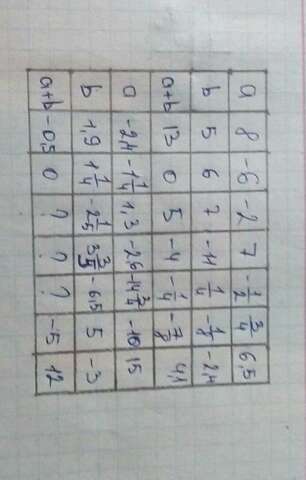 a 8 -6 -2 7 -1/2 3/4 6,5
b 5 6 7 -11 1/4 -1/8 -2,4
a+b 13 0 5 -4 -1/4 -7/8 4,1
a -2,4 -1 1/4 1,3 -2,6 -14 3/4 -10 15
b 1,9 1 1/4 -2 1/5 3 3/5 -6,5 5 -3
a+b -0,5 0 ? ? ? -5 12